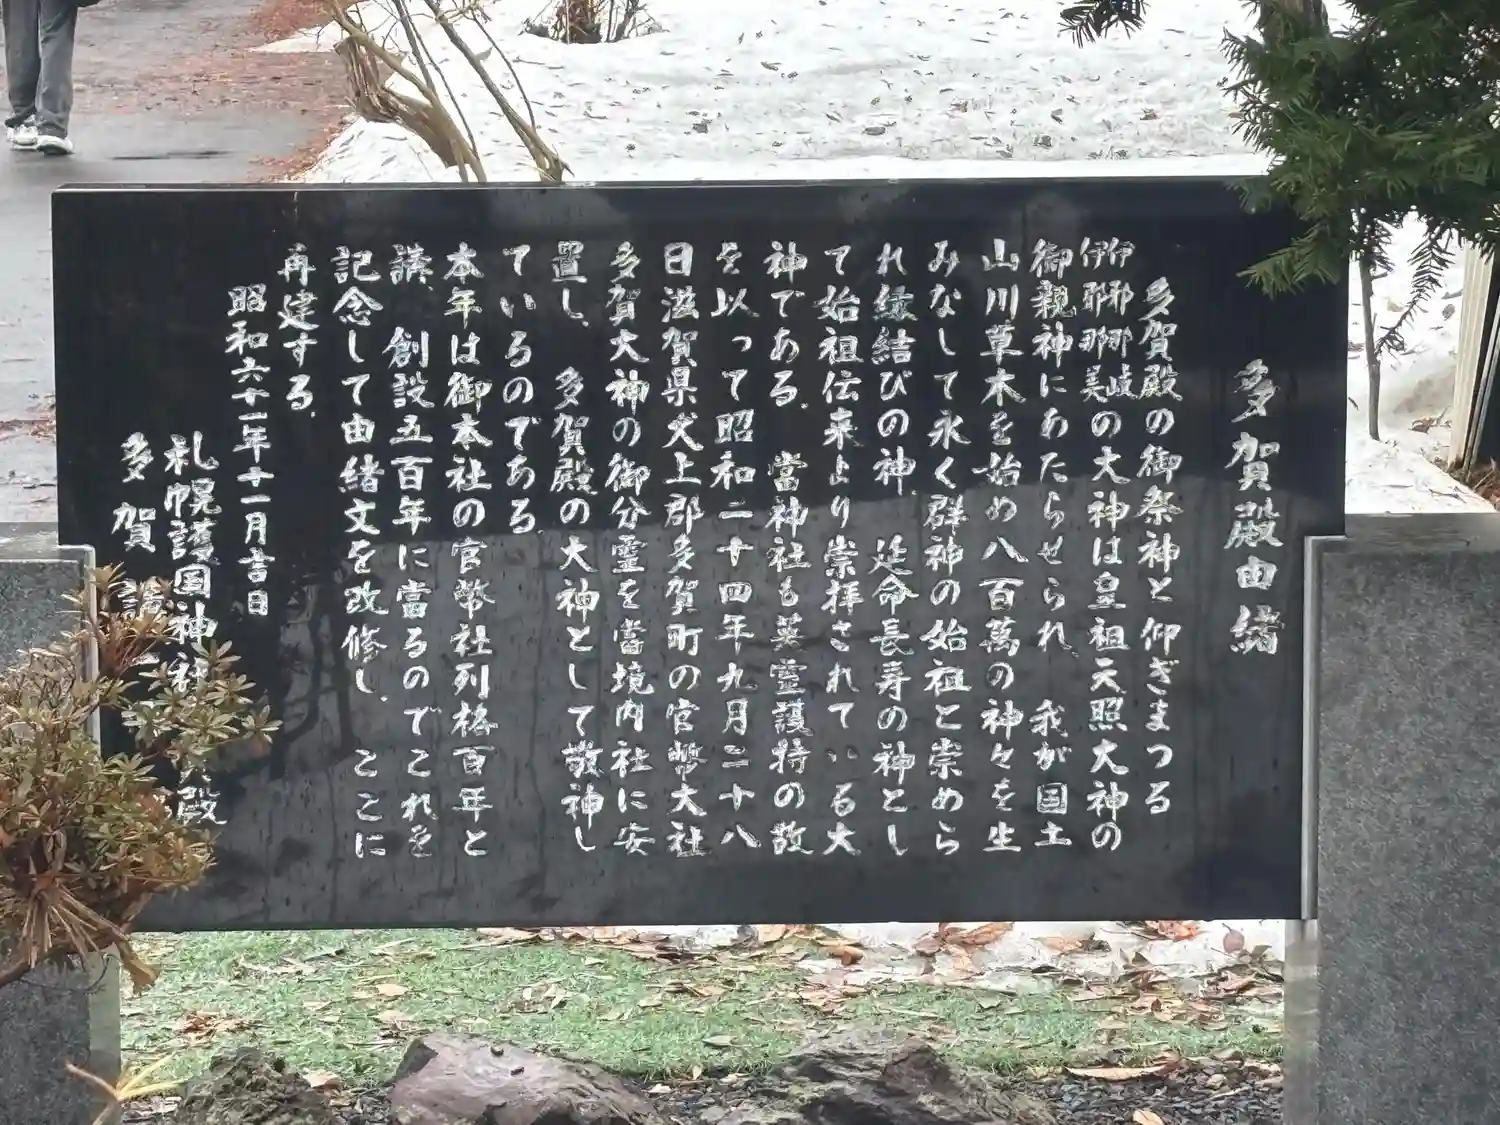 多賀殿由緒
多賀殿の御祭神と仰ぎまつる
伊邪那岐
伊耶那美の大神は皇祖天照大神の
御親神にあたらせられ、我が国土
山川草木を始め八百萬の神々を生
みなして永く群神の始祖と崇めら
れ縁結びの神、延命長寿の神とし
て始祖伝来より崇拝されている大
神である。當神社も英霊護持の故
を以って昭和二十四年九月二十八
日滋賀県犬上郡多賀町の官幣大社
多賀大神の御分霊を當境内社に安
置し、多賀殿の大神として敬神し
ているのである。
本年は御本社の官幣社列格百年と
講、創設五百年に當るのでこれを
記念して由緒文を改修し、ここに
再建する。
昭和六十一年十一月吉日
札幌護国神社 殿
多賀講